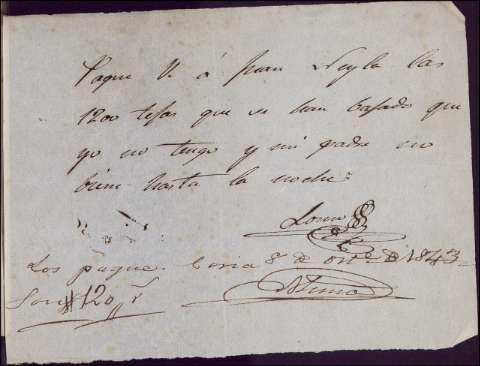 Pague V. á Juan Seyla las
1200 tejas que se han bajado que
yo no tengo y mi padre no
biene hasta la noche
Los pagué. Coria 8 de de 1843
Son # 120 r